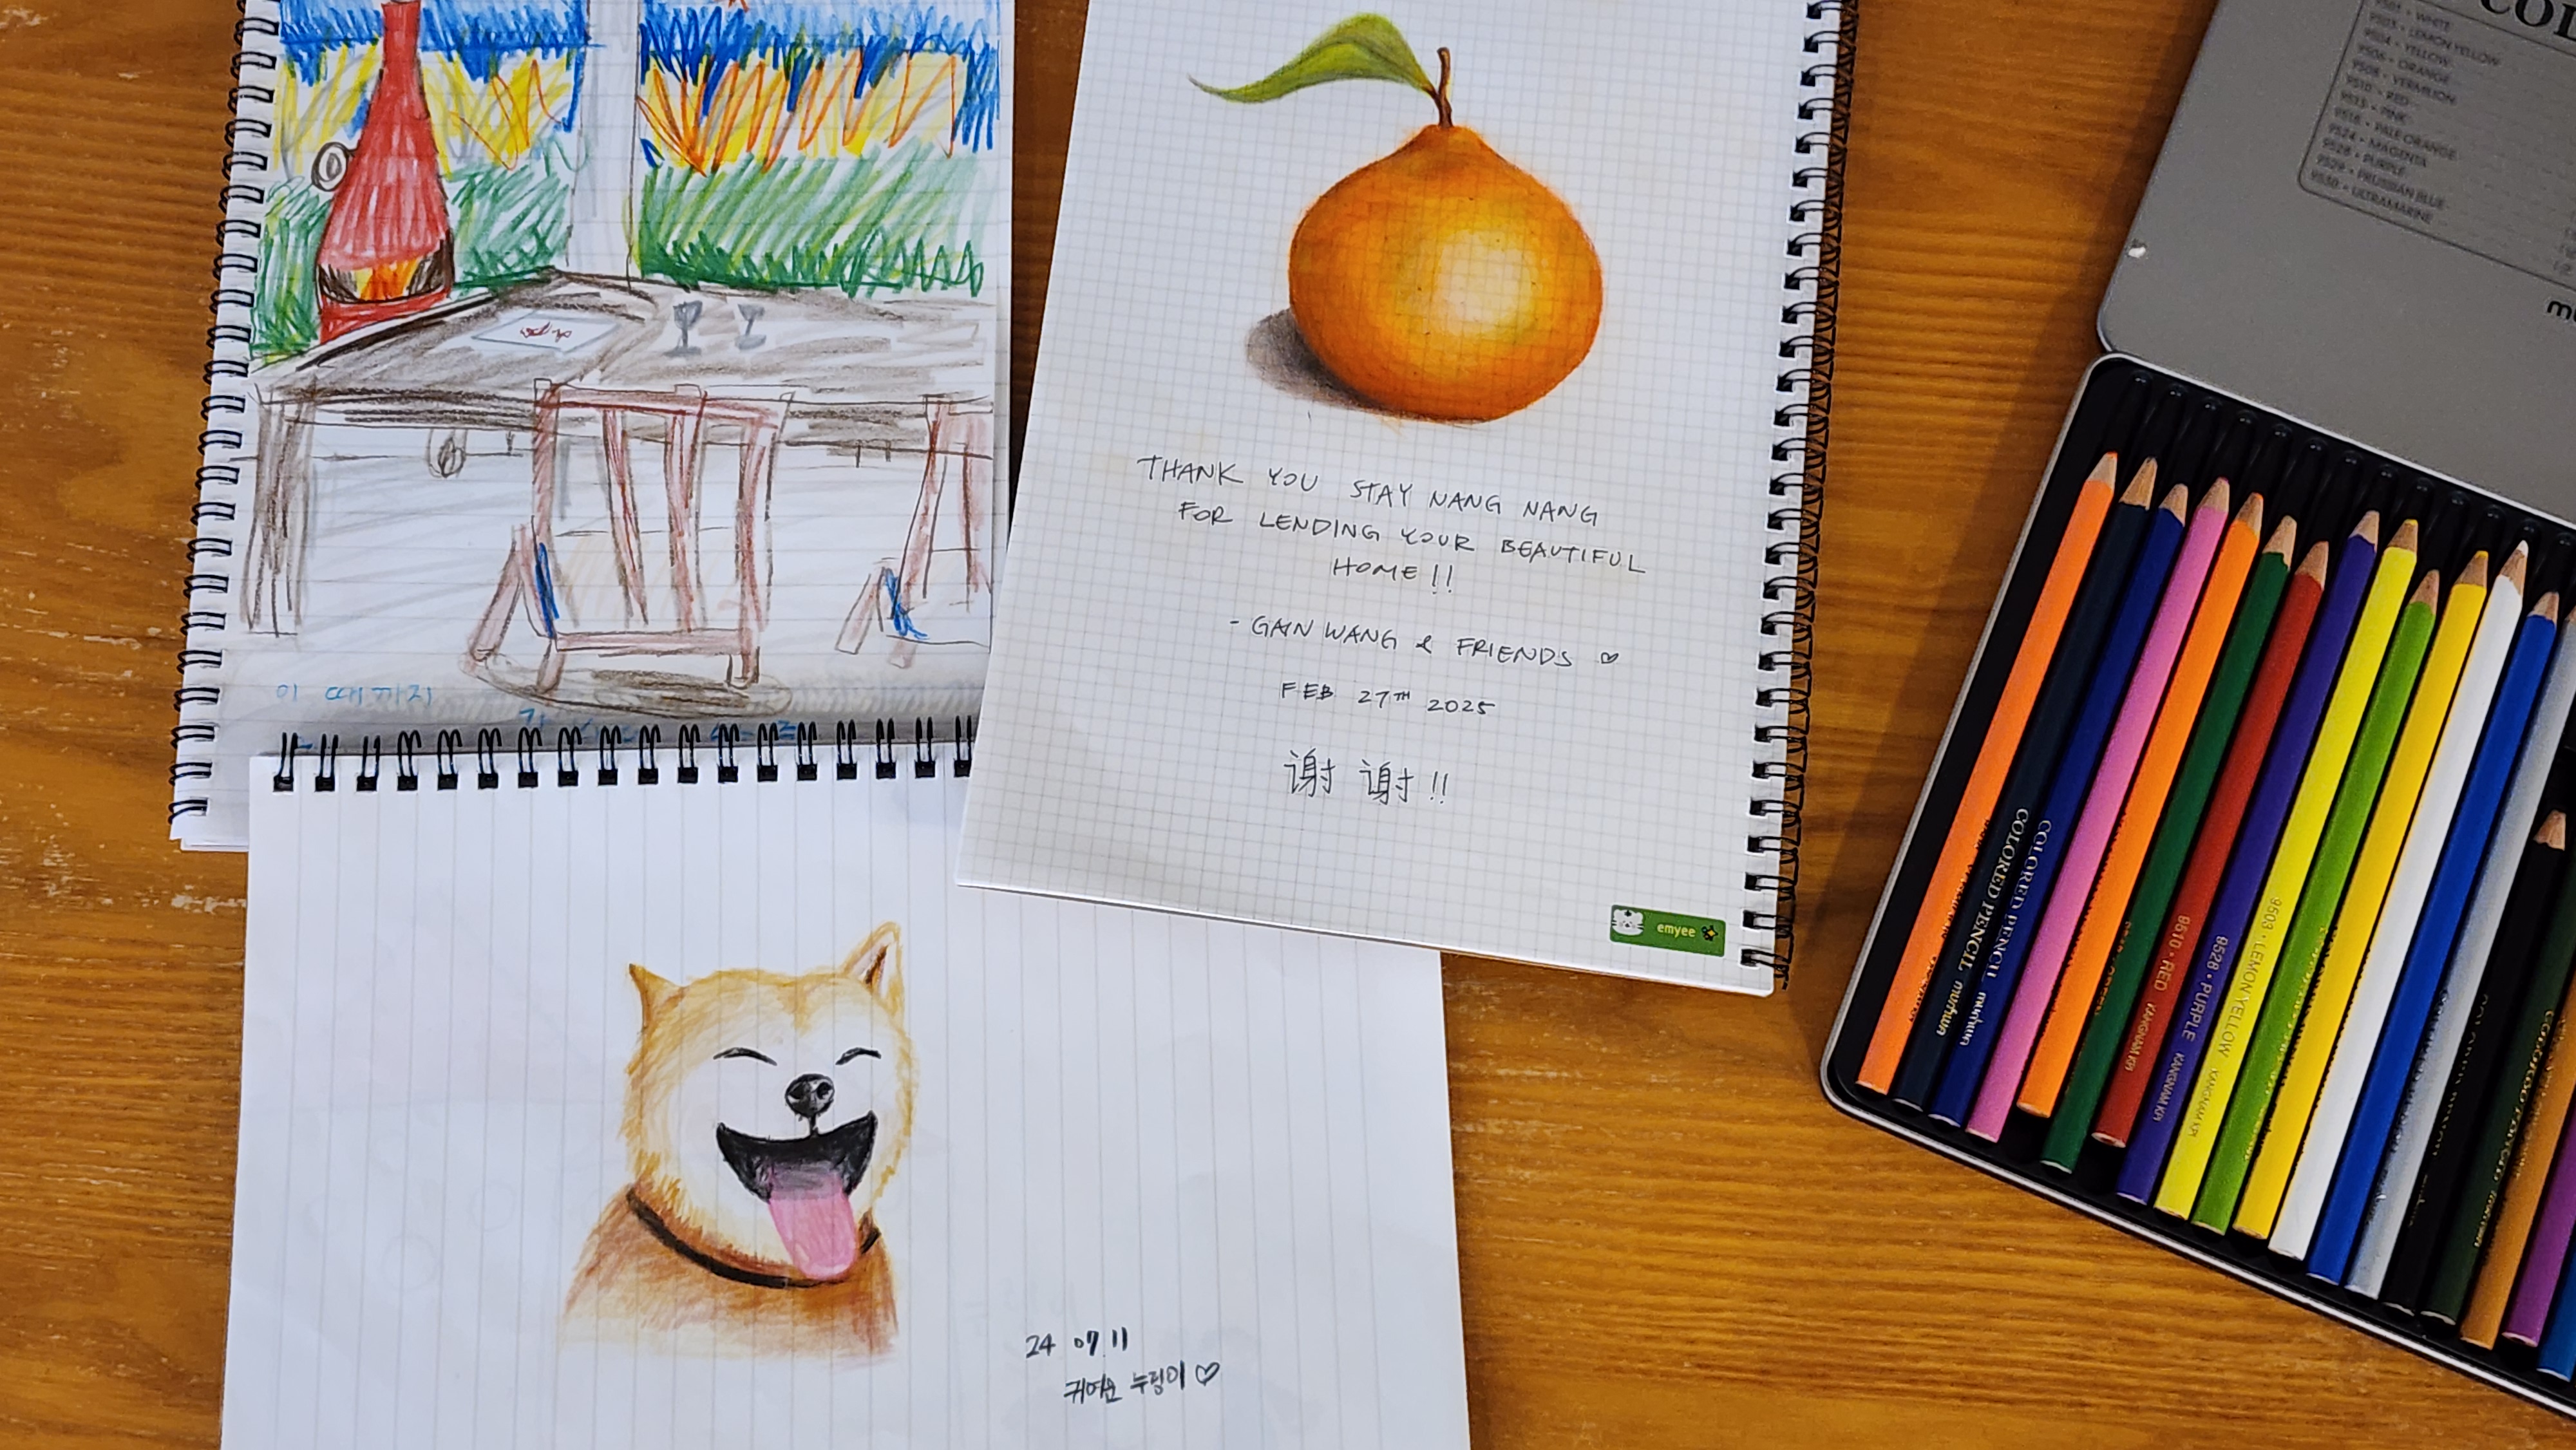 이 때까지
THANK YOU STAY NANG NANG
FOR LENDING YOUR BEAUTIFUL
HOME!!
- GAIN WANG & FRIENDS ♡
FEB 27TH 2025
谢谢!!
emyee
24 07.11
귀여운 누렁이 ♡
9501 • WHITE
9503 • LEMON YELLOW
9504 • YELLOW
9506 • ORANGE
9508 • VERMILION
9510 • RED
PINK
9516 • PALE ORANGE
9524 • MAGENTA
9528 • PURPLE
9529 • PRUSSIAN BLUE
9530 • ULTRAMARINE
COLORED PENCIL munhwa
COLORED PENCIL munhwa
9510 • RED KANGNAM KPI
9528 • PURPLE KANGNAM KPI
9503 • LEMON YELLOW KANGNAM KPI